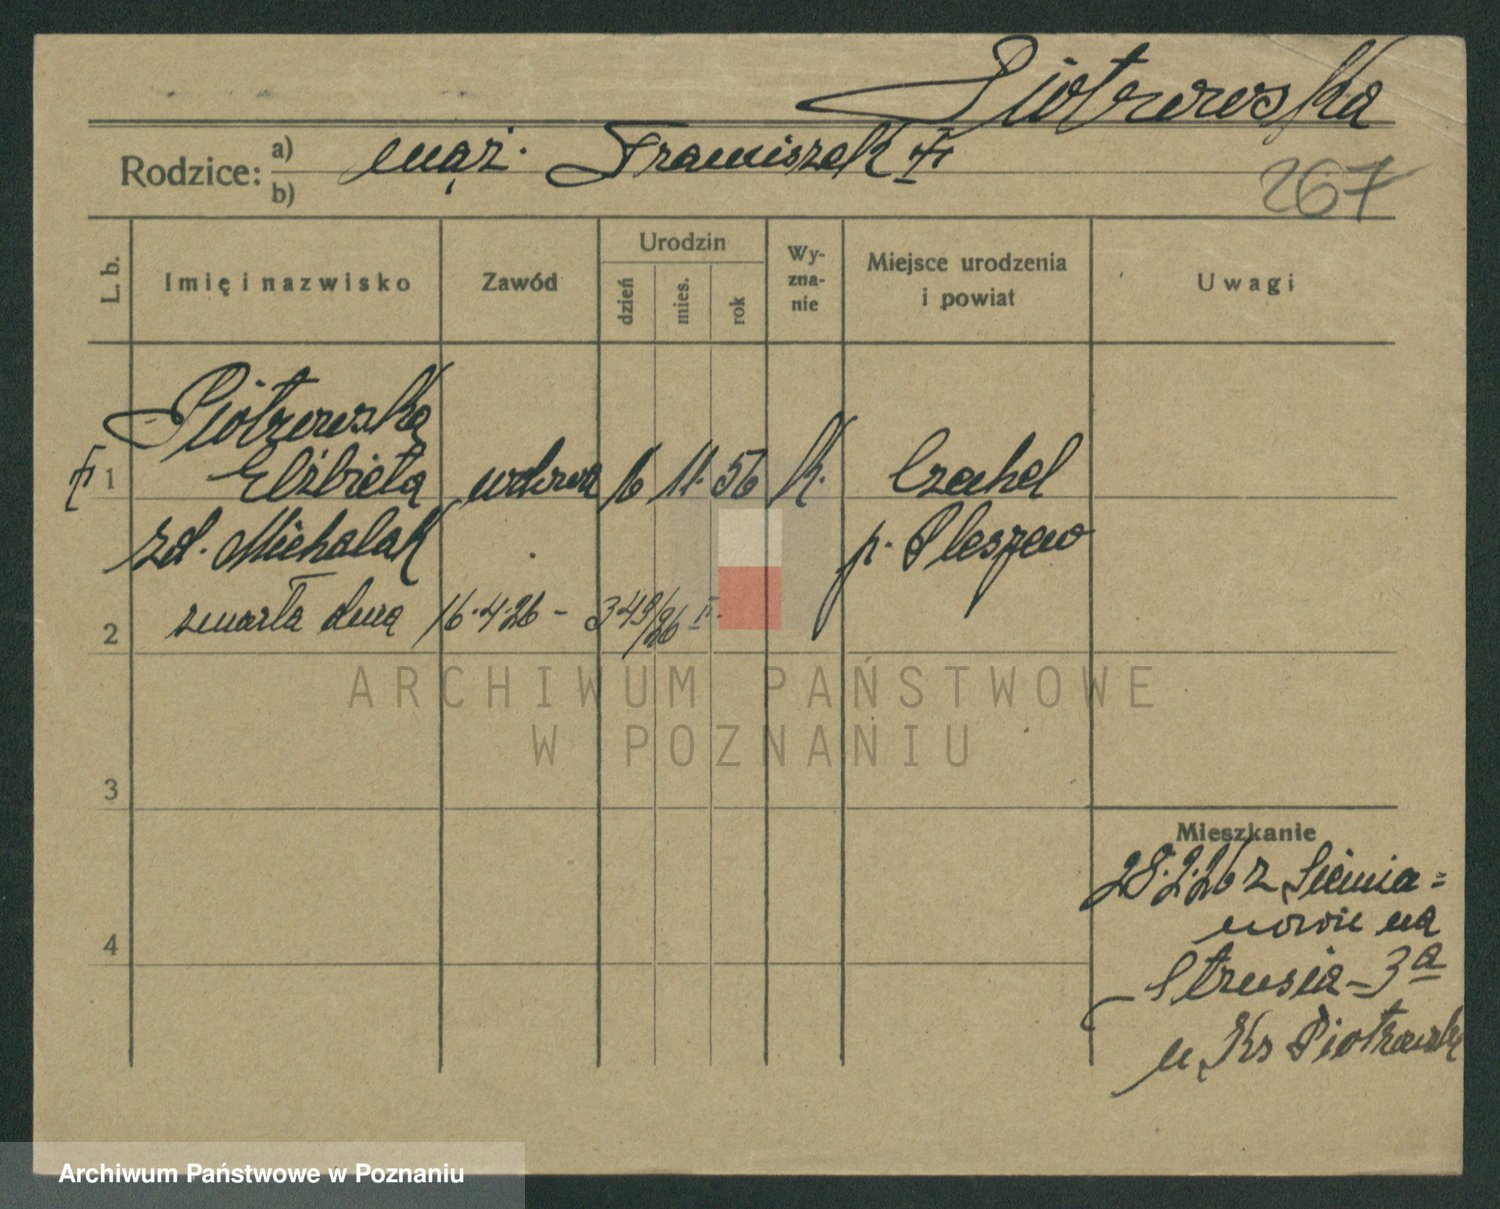 Piotrowska
Rodzice: a) mąż. Franciszek
b)
267
L. b.
Imię i nazwisko
Zawód
Urodzin
dzień
mies.
rok
Wy-
zna-
nie
Miejsce urodzenia
i powiat
Uwagi
Piotrowska
1 Elżbieta wdowa 6 11. 56 k. Czechel
zd. Michalak p. Pleszew
2 zmarła dnia 16.4.26 - 349/26
ARCHIWUM PAŃSTWOWE
W POZNANIU
3
4
Mieszkanie
28.2.26 z Siemia=
nowic na
Strusia - 3a
u Ks Piotrowski
Archiwum Państwowe w Poznaniu